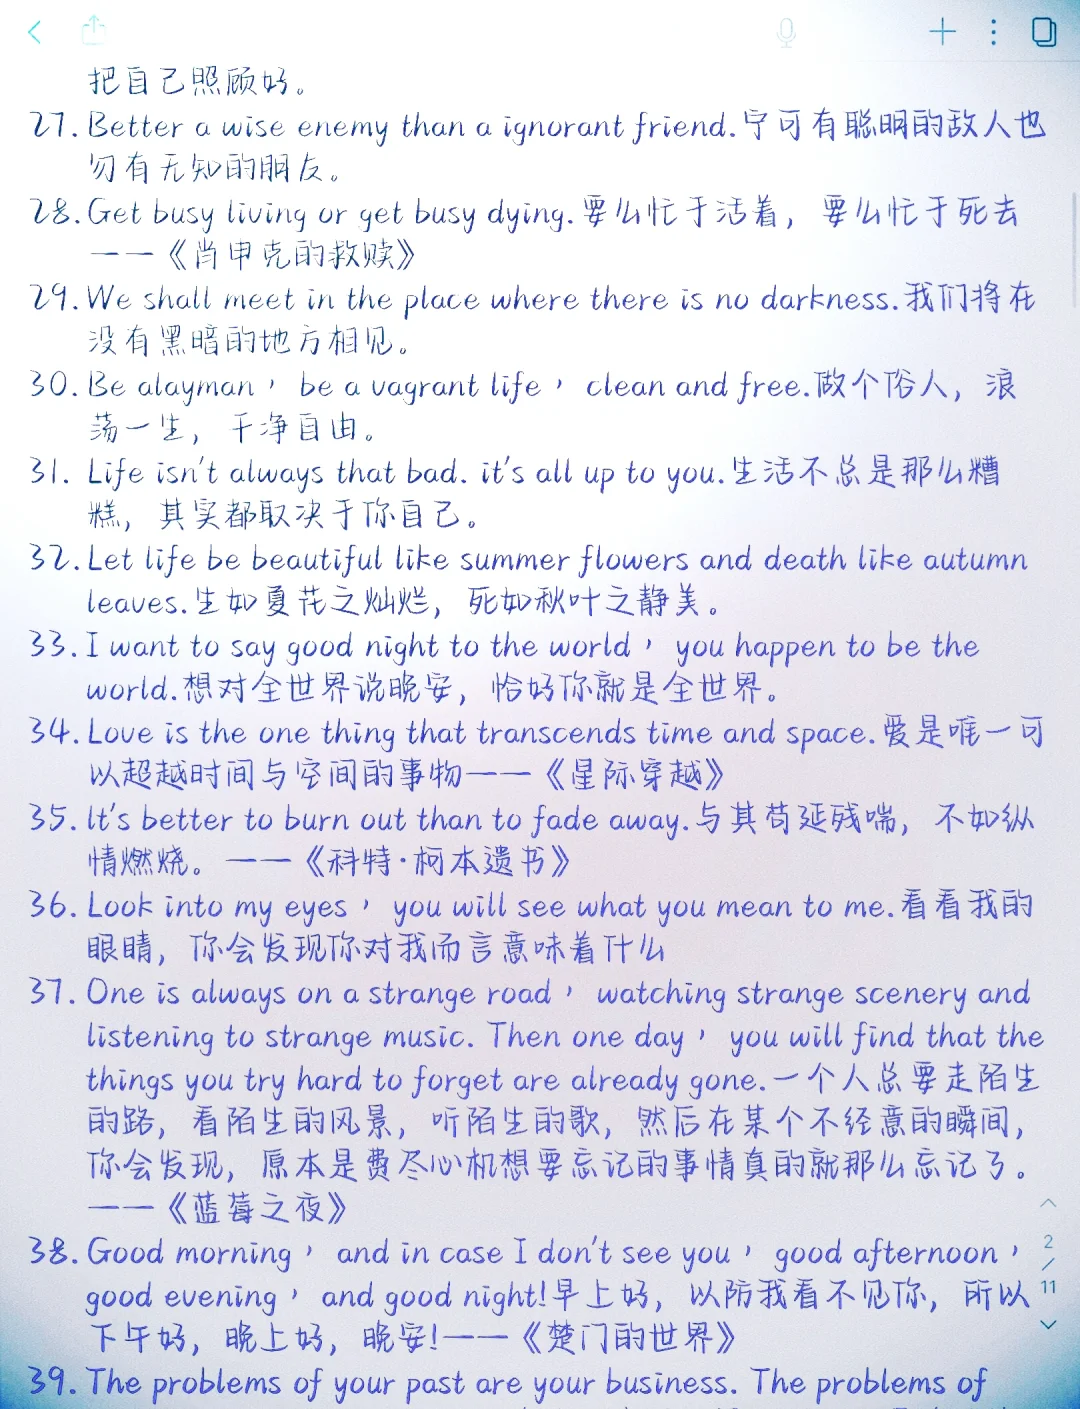 把自己照顾好。
27. Better a wise enemy than a ignorant friend.宁可有聪明的敌人也
勿有无知的朋友。
28. Get busy living or get busy dying.要么忙于活着，要么忙于死去
——《肖申克的救赎》
29. We shall meet in the place where there is no darkness.我们将在
没有黑暗的地方相见。
30. Be alayman， be a vagrant life， clean and free.做个俗人，浪
荡一生，干净自由。
31. Life isn't always that bad. it's all up to you.生活不总是那么糟
糕，其实都取决于你自己。
32. Let life be beautiful like summer flowers and death like autumn
leaves.生如夏花之灿烂，死如秋叶之静美。
33. I want to say good night to the world， you happen to be the
world.想对全世界说晚安，恰好你就是全世界。
34. Love is the one thing that transcends time and space.爱是唯一可
以超越时间与空间的事物——《星际穿越》
35. It's better to burn out than to fade away.与其苟延残喘，不如纵
情燃烧。——《科特·柯本遗书》
36. Look into my eyes， you will see what you mean to me.看看我的
眼睛，你会发现你对我而言意味着什么
37. One is always on a strange road， watching strange scenery and
listening to strange music. Then one day， you will find that the
things you try hard to forget are already gone.一个人总要走陌生
的路，看陌生的风景，听陌生的歌，然后在某个不经意的瞬间，
你会发现，原本是费尽心机想要忘记的事情真的就那么忘记了。
——《蓝莓之夜》
38. Good morning， and in case I don't see you， good afternoon，
good evening， and good night!早上好，以防我看不见你，所以
下午好，晚上好，晚安!——《楚门的世界》
2
/
11
39. The problems of your past are your business. The problems of